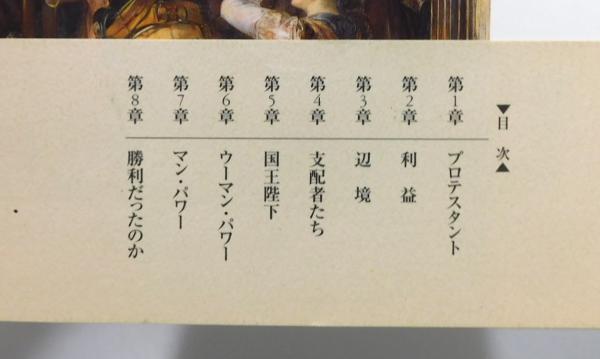 ▼目次▲
第1章 プロテスタント
第2章 利益
第3章 辺境
第4章 支配者たち
第5章 国王陛下
第6章 ウーマン・パワー
第7章 マン・パワー
第8章 勝利だったのか